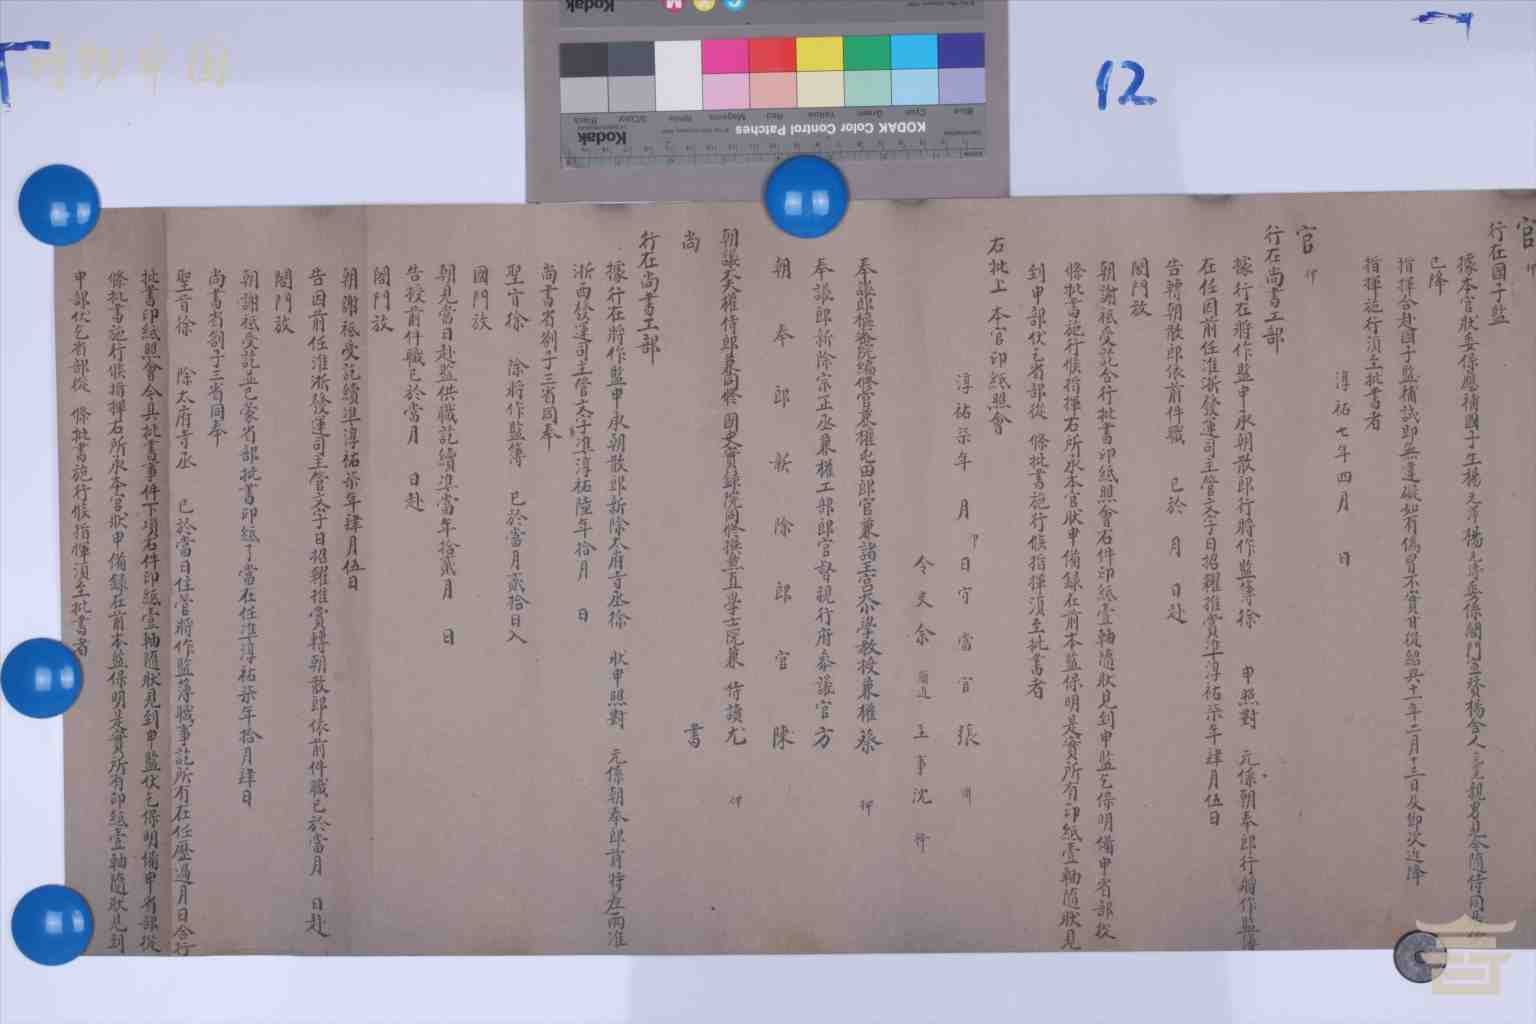 官 印
行在國子監
據本官狀委係應補國子生楊 委係閤門宣贊楊舍人 親男見今隨侍同
已降
指揮合赴國子監補試即無違礙如有偽冒不實甘從紹興十一年二月十三日及節次近降
指揮施行須至批書者
淳祐七年四月 日
官 印
行在尚書工部
據行在將作監申承朝散郎行將作監簿徐 申照對 元係朝奉郎行將作監簿
在任因前任淮浙發運司主管文字日招糴推賞準淳祐柒年肆月伍日
告轉朝散郎依前件職 已於 月 日赴
閤門放
朝謝祗受訖合行批書印紙照會右件印紙壹軸隨狀見到申監乞保明備申省部從
條批書施行候指揮右所承本官狀申備錄在前本監保明是實所有印紙壹軸隨狀見
到申部伏乞省部從 條批書施行候指揮須至批書者
右批上 本官印紙照會
淳祐柒年 月 印 日守 當 官 張
令史余 主事沈
奉議郎樞密院編修官兼權屯田郎官兼諸王宮大小學教授兼權 蔡 押
奉議郎新除宗正丞兼權工部郎官督視行府參議官方
朝 奉 郎 新 除 郎 官 陳
朝議大夫權侍郎兼同修 國史實錄院同修撰兼直學士院兼 侍讀尤 押
尚 書
行在尚書工部
據行在將作監申承朝散郎新除太府寺丞徐 狀申照對 元係朝奉郎前特差兩淮
浙西發運司主管文字準淳祐陸年拾月 日
尚書省劄子三省同奉
聖旨徐 除將作監簿 已於當月貳拾日入
國門放
朝見當日赴監供職訖續準當年拾貳月 日
告授前件職已於當月 日赴
閤門放
朝謝祗受訖續準淳祐柒年肆月伍日
告因前任淮浙發運司主管文字日招糴推賞轉朝散郎依前件職已於當月 日赴
閤門放
朝謝祗受訖並已蒙省部批書印紙了當在任準淳祐柒年拾月肆日
尚書省劄子三省同奉
聖旨徐 除太府寺丞 已於當日住管將作監簿職事訖所有在任歷過月日合行
批書印紙照會今具批書事件下項右件印紙壹軸隨狀見到申監伏乞保明備申省部從
條批書施行候指揮右所承本官狀申備錄在前本監保明是實所有印紙壹軸隨狀見到
申部伏乞省部從 條批書施行候指揮須至批書者
12
Kodak
KODAK Color Control Patches
Kodak